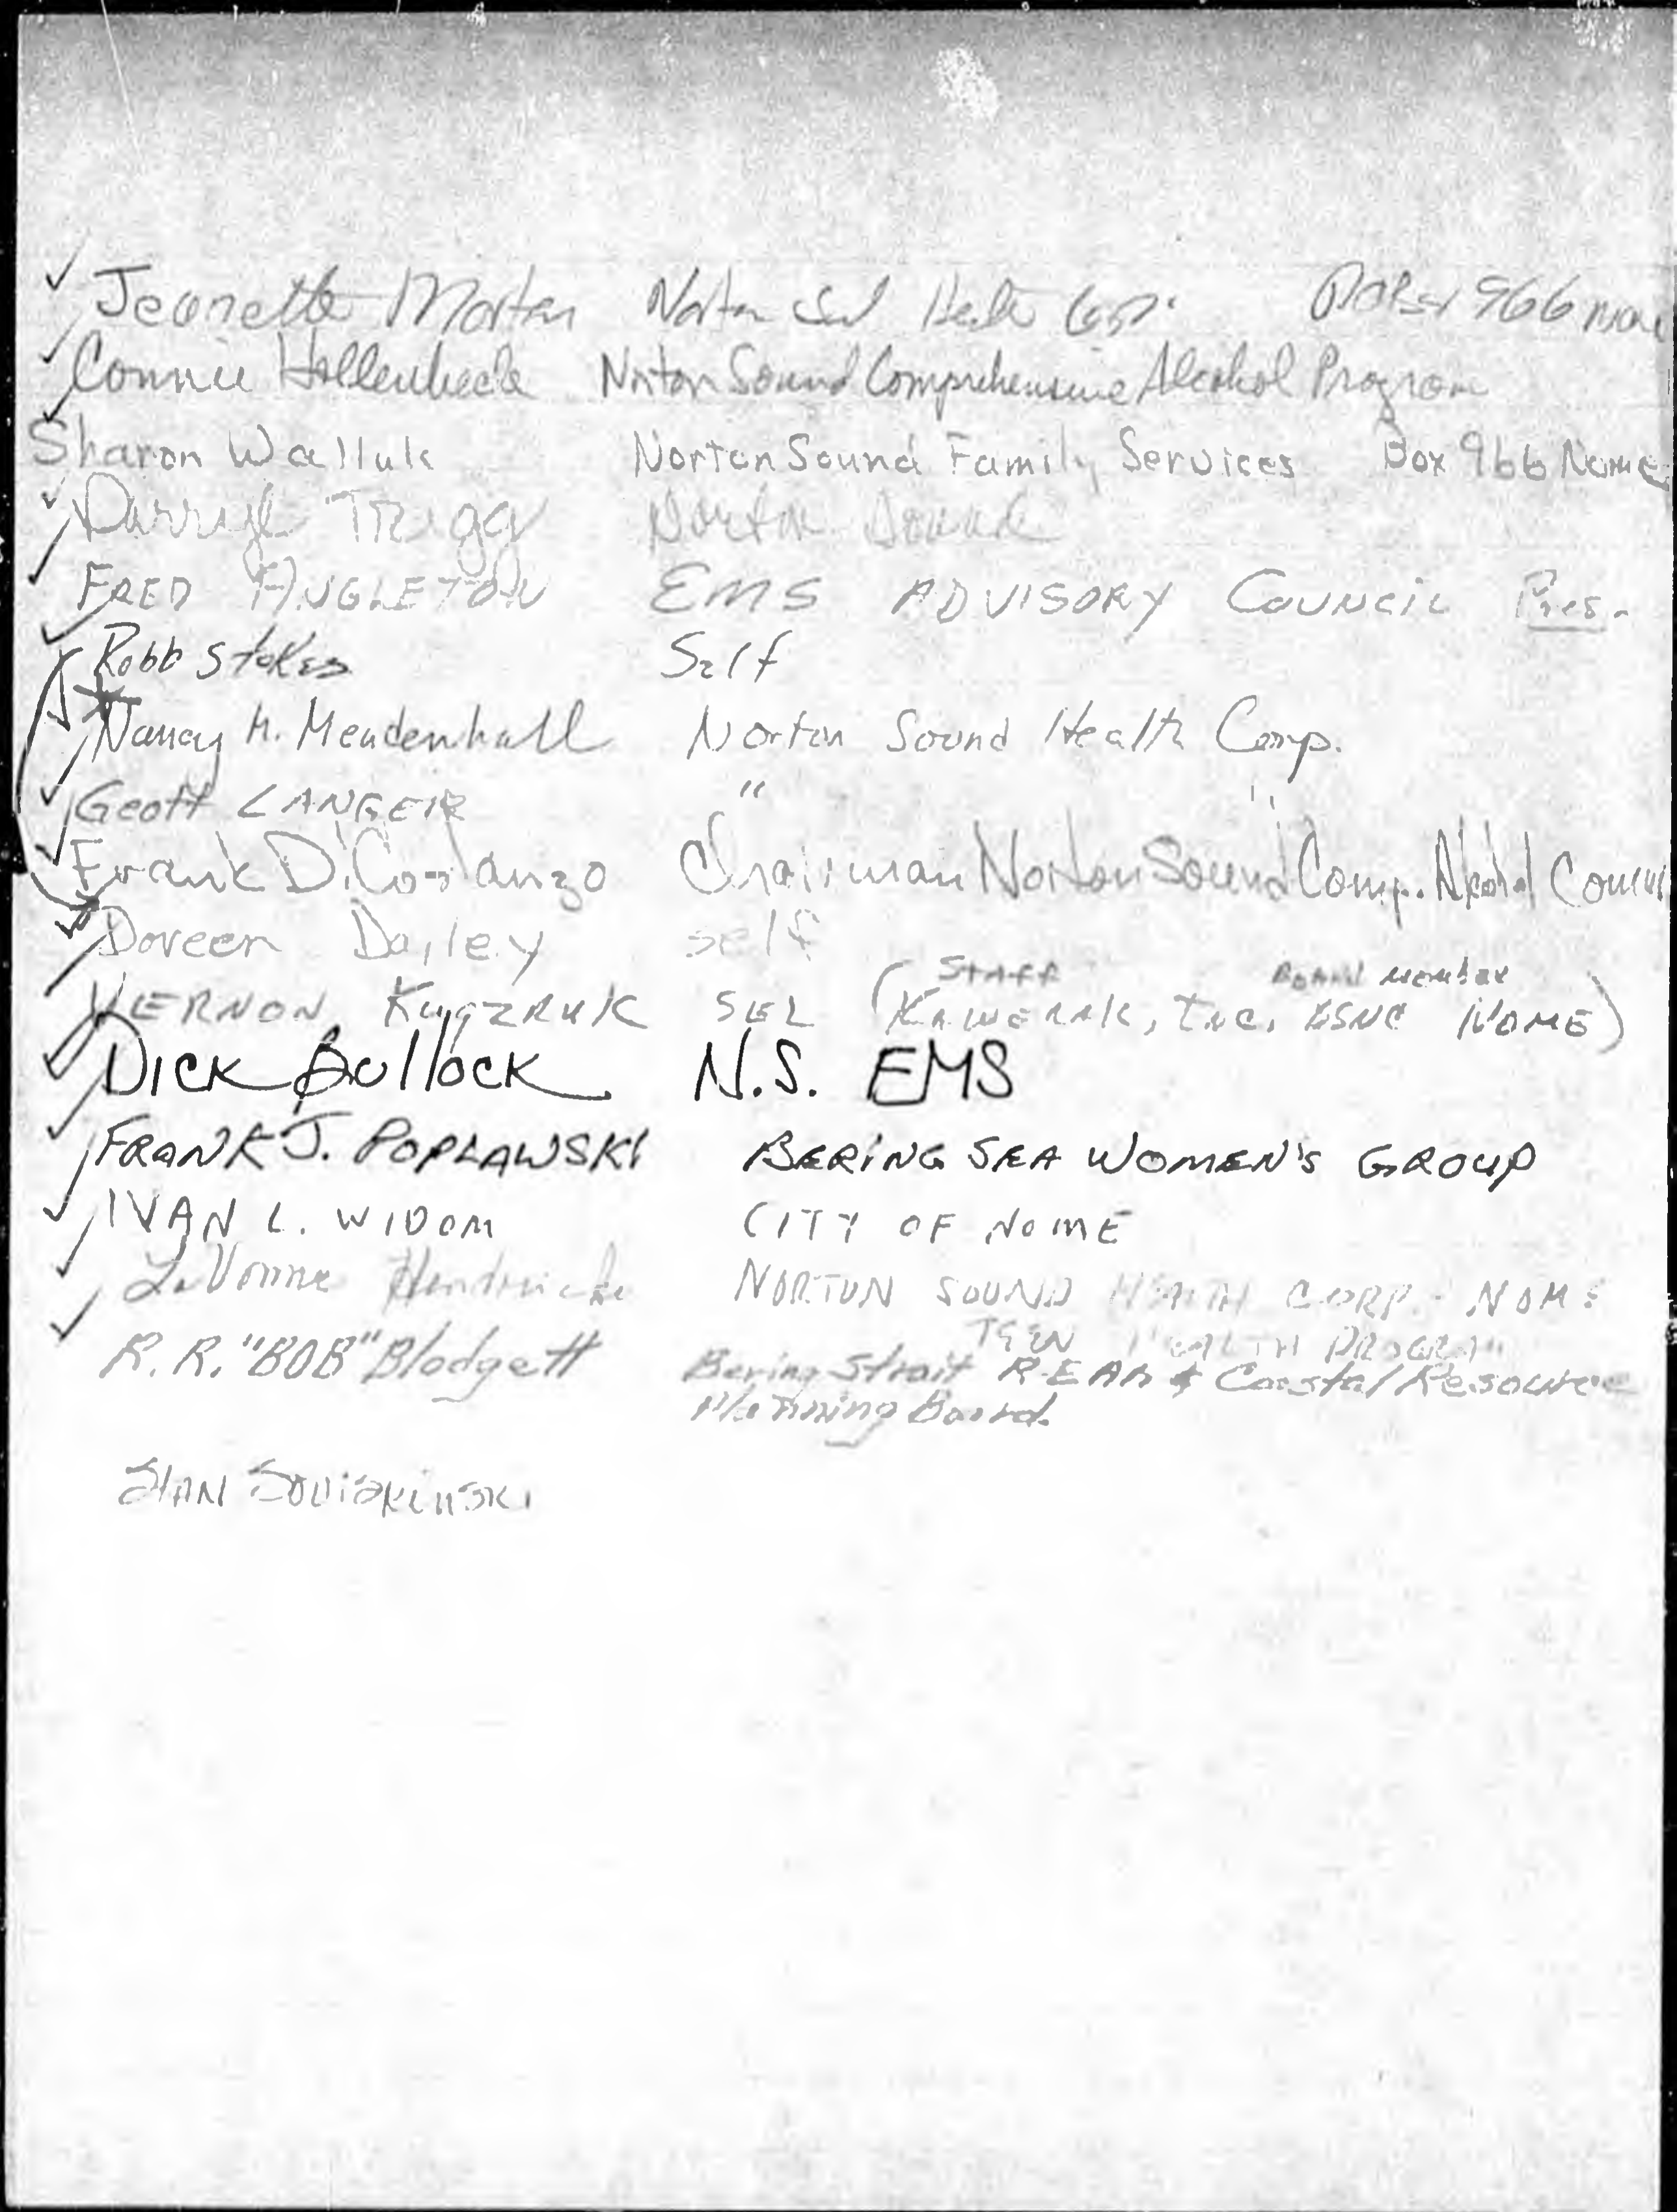 ✓ Jeanette Morten Norton Sd Health Corp. PO Box 966 Nome
✓ Connie Hollenbeck Norton Sound Comprehensive Alcohol Program
✓ Sharon Walluk Norton Sound Family Services Box 966 Nome
✓ Darryl Trigg Norton Sound
✓ FRED ANGLETON EMS ADVISORY COUNCIL Pres.
✓ Robb Stokes Self
Nancy H. Mendenhall Norton Sound Health Corp.
✓ Geoff LANGER " "
✓ Frank DiCostanzo Chairman Norton Sound Comp. Alcohol Council
✓ Doreen Dailey self
STAFF BOARD MEMBER
VERNON KugzRUK SEL (KAWERAK, INC. BSNC NOME)
✓ DICK BULLOCK N.S. EMS
✓ FRANK J. POPLAWSKI BERING SEA WOMEN'S GROUP
✓ IVAN L. WIDOM CITY OF NOME
✓ LaVonne Hendricks NORTON SOUND HEALTH CORP. - NOME
HEALTH PROGRAM
✓ R. R. "BOB" Blodgett Bering Strait REAA & Coastal Resource
Planning Board.
STAN